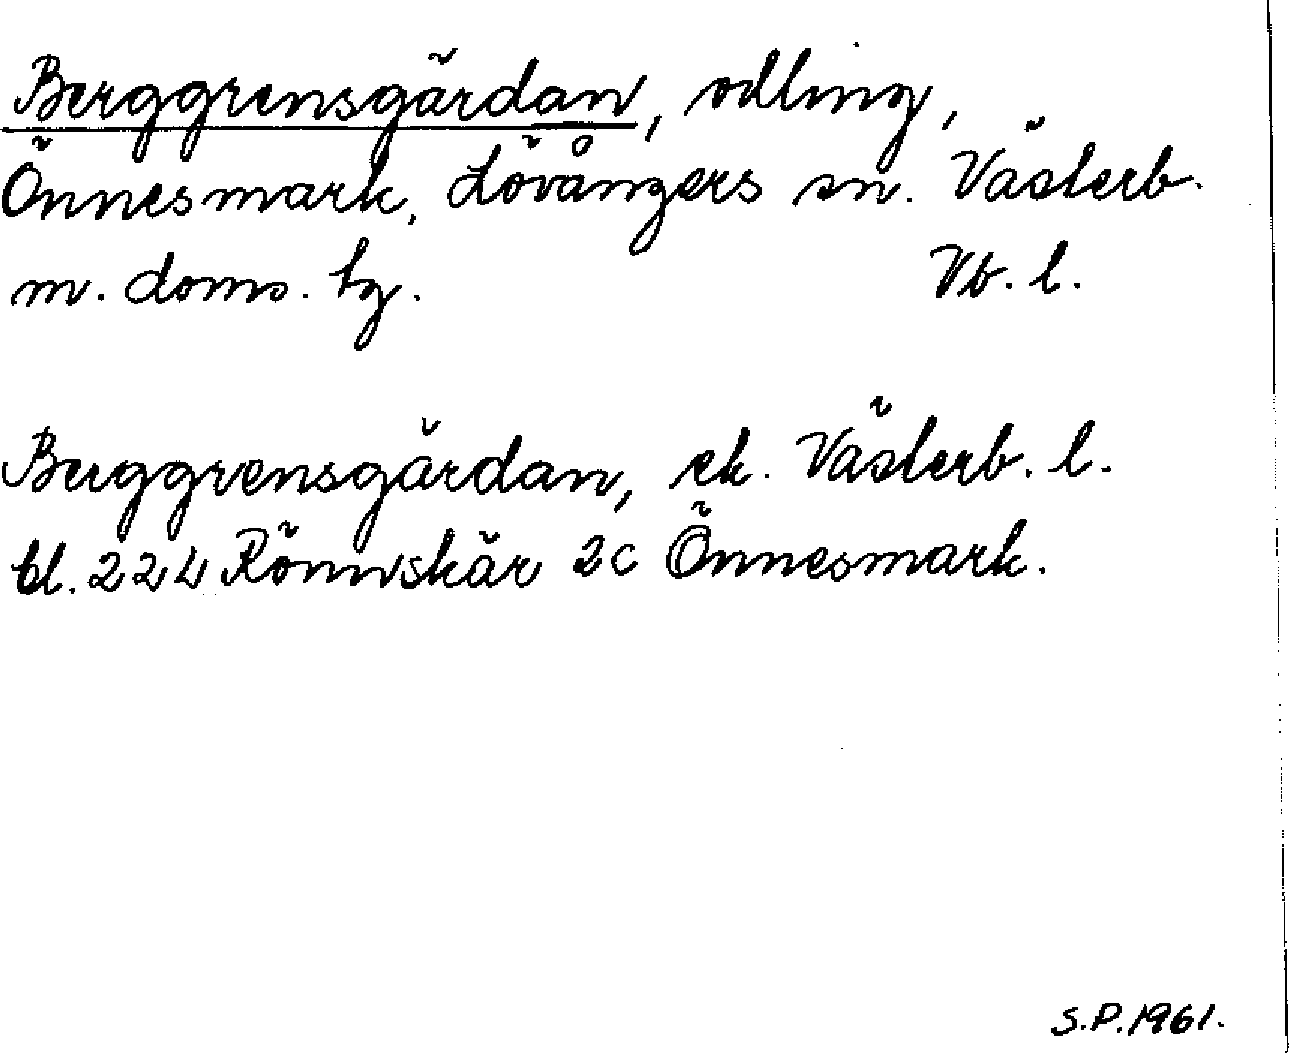 Berggrensgärdan, odling,
Önnesmark, Lövångers sn. Västerb.
m. doms. tg. Vb. l.
Berggrensgärdan, ek. Västerb. l.
bl. 224 Rönnskär 2c Önnesmark.
S.P. 1961.